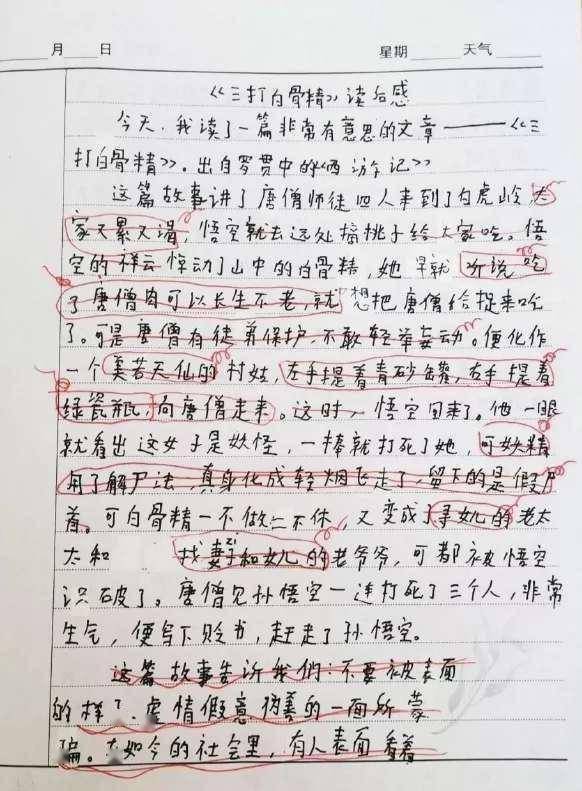 月 日 星期 天气
《三打白骨精》读后感
今天,我读了一篇非常有意思的文章——《三
打白骨精》。出自罗贯中的《西游记》
这篇故事讲了唐僧师徒四人来到了白虎岭,大
家又累又渴,悟空就去远处摘桃子给大家吃。悟
空的祥云惊动了山中的白骨精,她早就听说吃
了唐僧肉可以长生不老,就想把唐僧给捉来吃
了。可是唐僧有徒弟保护,不敢轻举妄动。便化作
一个美若天仙的村姑,左手提着青砂罐,右手提着
绿瓷瓶,向唐僧走来。这时,悟空回来了。他一眼
就看出这女子是妖怪,一棒就打死了她,可妖精
用了解尸法,真身化成轻烟飞走了,留下的是假尸
首。可白骨精一不做二不休,又变成了寻女儿的老太
太和 找妻子和女儿的老爷爷,可都被悟空
识破了。唐僧见孙悟空一连打死了三个人,非常
生气,便写下贬书,赶走了孙悟空。
这篇故事告诉我们:不要被表面
的样子、虚情假意,伪善的一面所蒙
骗。如今的社会里,有人表面看着